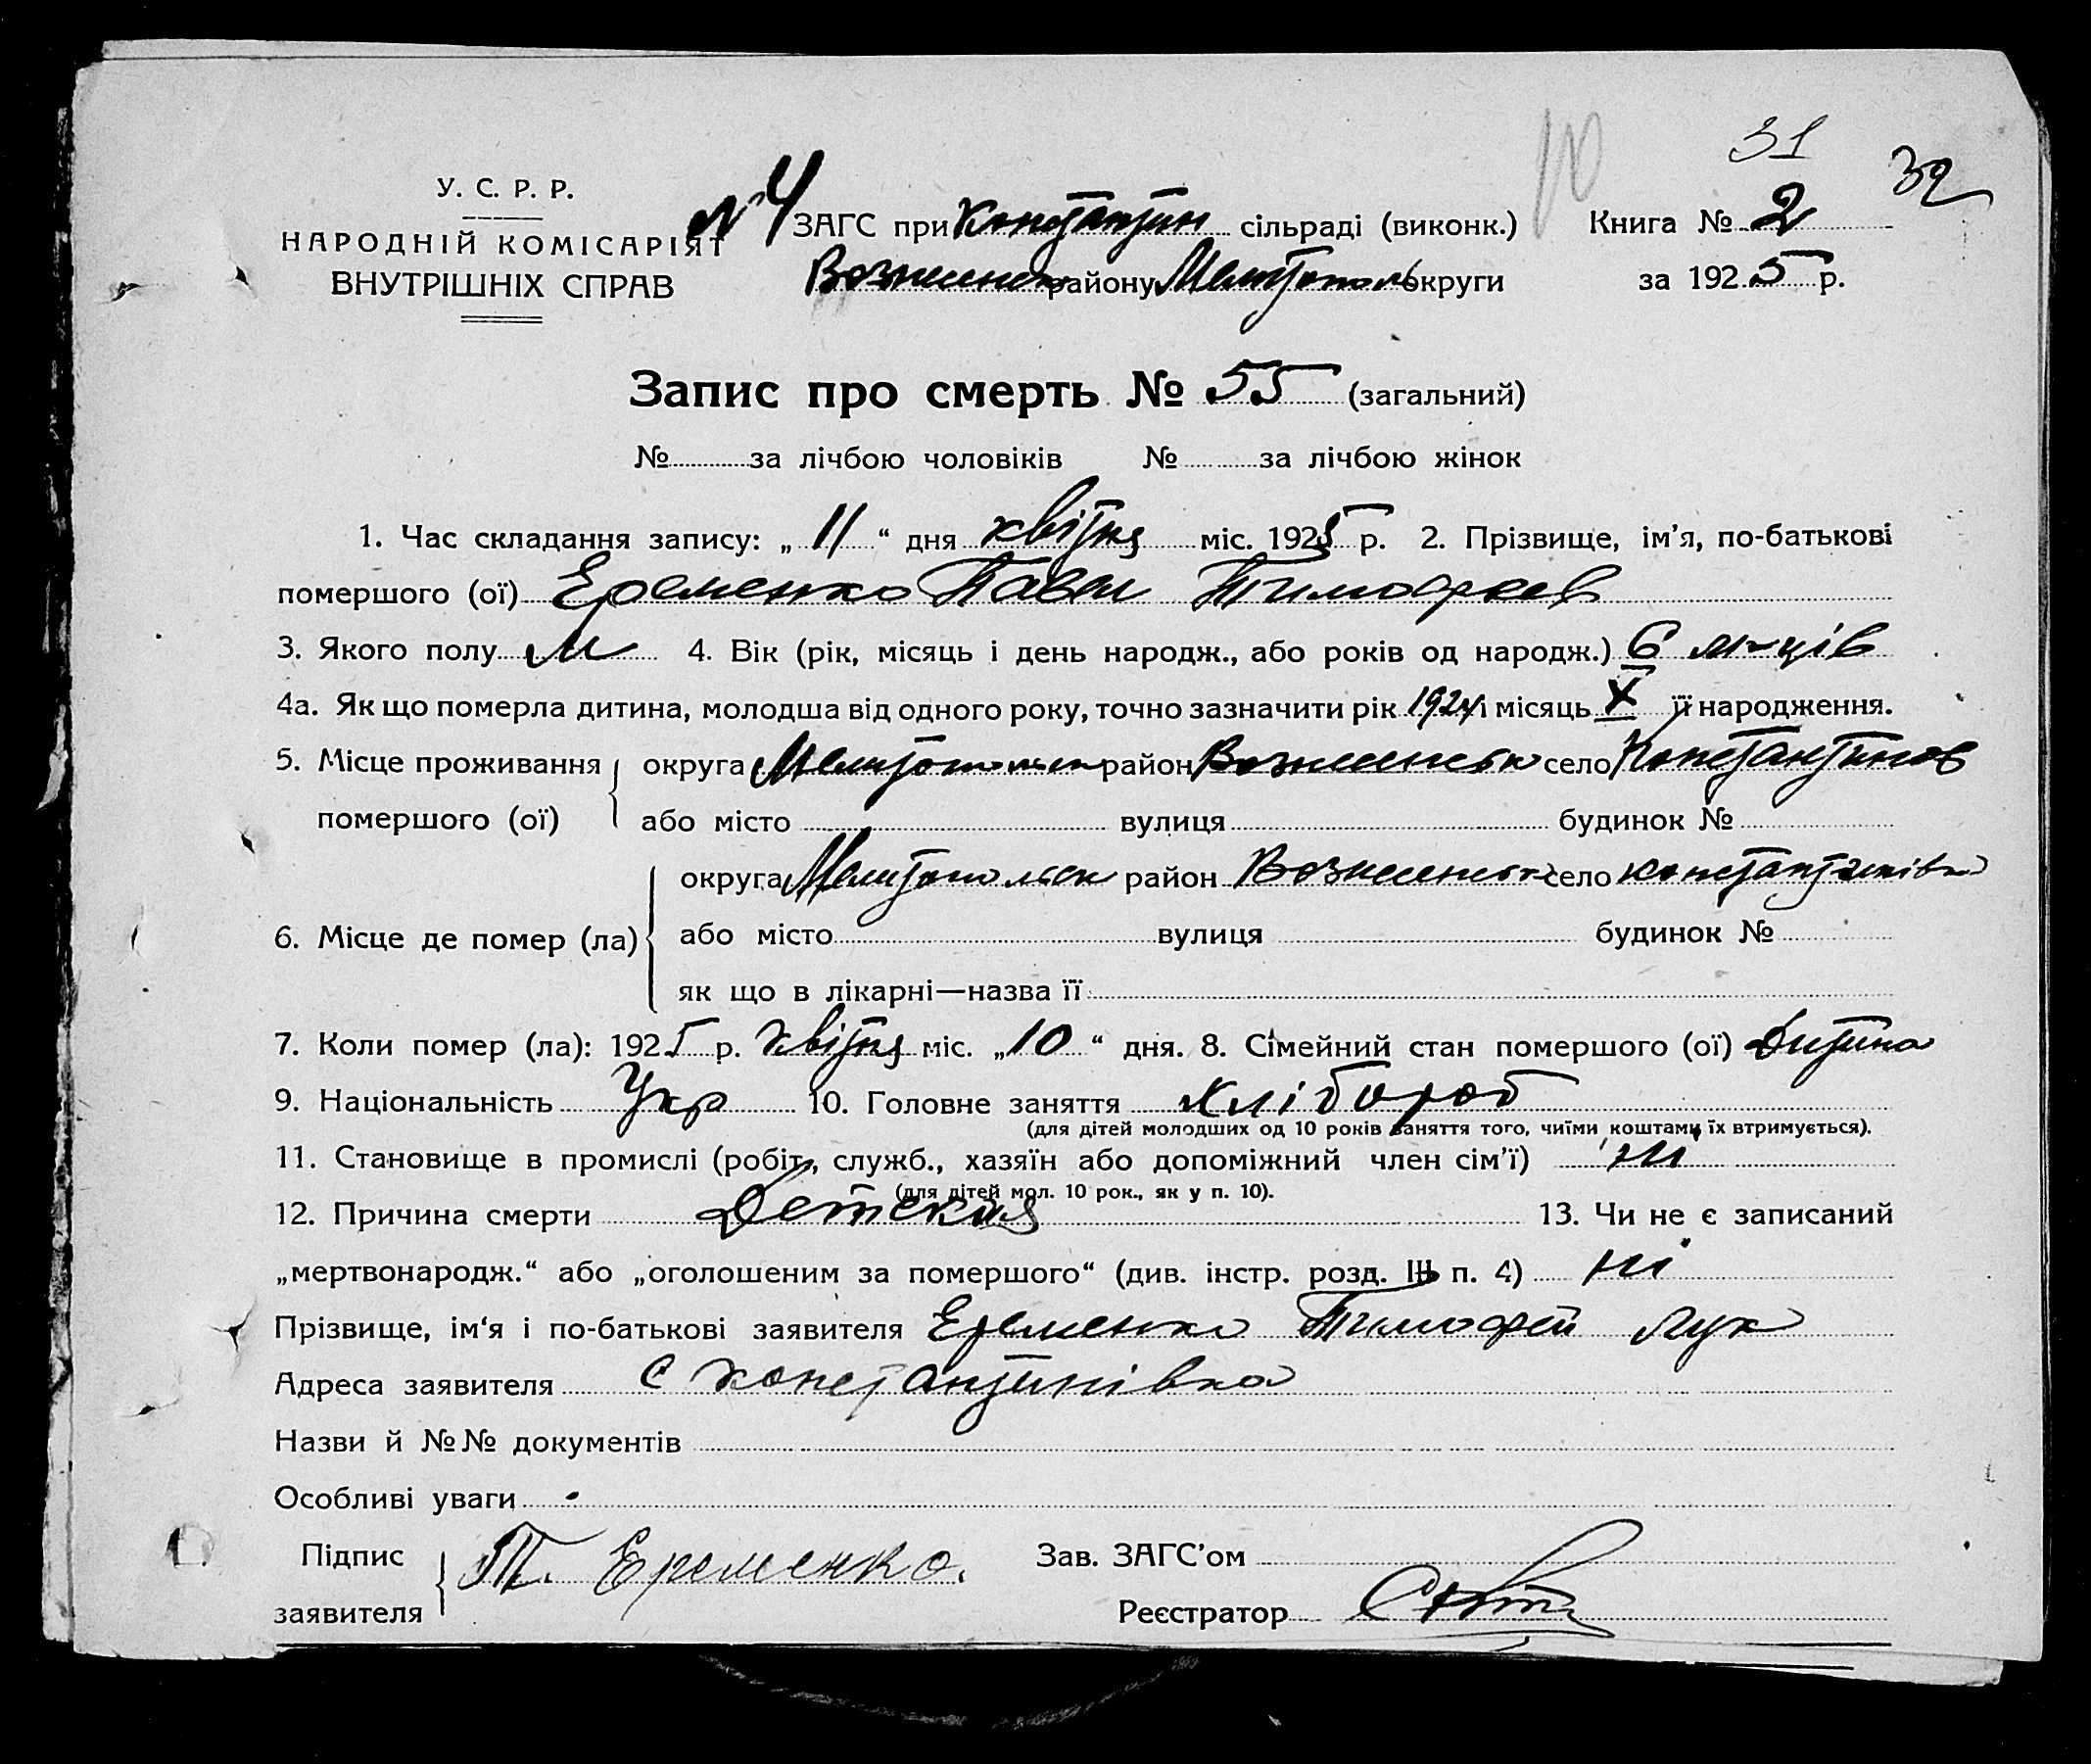 10 31 32
У. С. Р. Р.
НАРОДНІЙ КОМІСАРІЯТ
ВНУТРІШНІХ СПРАВ
№ 4 ЗАГС при Констянтин сільраді (виконк.) Книга № 2
Вознесенск району Мелитополь округи за 1925 р.
Запис про смерть № 55 (загальний)
№ за лічбою чоловіків № за лічбою жінок
1. Час складання запису: „ 11 “ дня квітня міс. 1925 р. 2. Прізвище, ім'я, по-батькові
помершого (ої) Еременко Павел Тимофеев
3. Якого полу М 4. Вік (рік, місяць і день народж., або років од народж.) 6 м-ців
4а. Як що померла дитина, молодша від одного року, точно зазначити рік 1924 і місяць X її народження.
5. Місце проживання округа Мелитопольск район Вознесенськ село Констянтинов
помершого (ої) або місто вулиця будинок №
округа Мелитопольск район Вознесенськ село Констянтинівка
6. Місце де помер (ла) або місто вулиця будинок №
як що в лікарні—назва її
7. Коли помер (ла): 1925 р. Квітня міс. „ 10 “ дня. 8. Сімейний стан помершого (ої) Дитина
9. Національність Укр 10. Головне заняття Хлібороб
(для дітей молодших од 10 років заняття того, чиїми коштами їх втримується).
11. Становище в промислі (робіт., служб., хазяїн або допоміжний член сім'ї)
(для дітей мол. 10 рок., як у п. 10).
12. Причина смерти Детская 13. Чи не є записаний
„мертвонародж.“ або „оголошеним за помершого“ (див. інстр. розд. III п. 4) ні
Прізвище, ім‘я і по-батькові заявителя Еременко Тимофей Лук
Адреса заявителя с Констянтинівка
Назви й №№ документів
Особливі уваги
Підпис Т. Еременко. Зав. ЗАГС'ом
заявителя Реєстратор